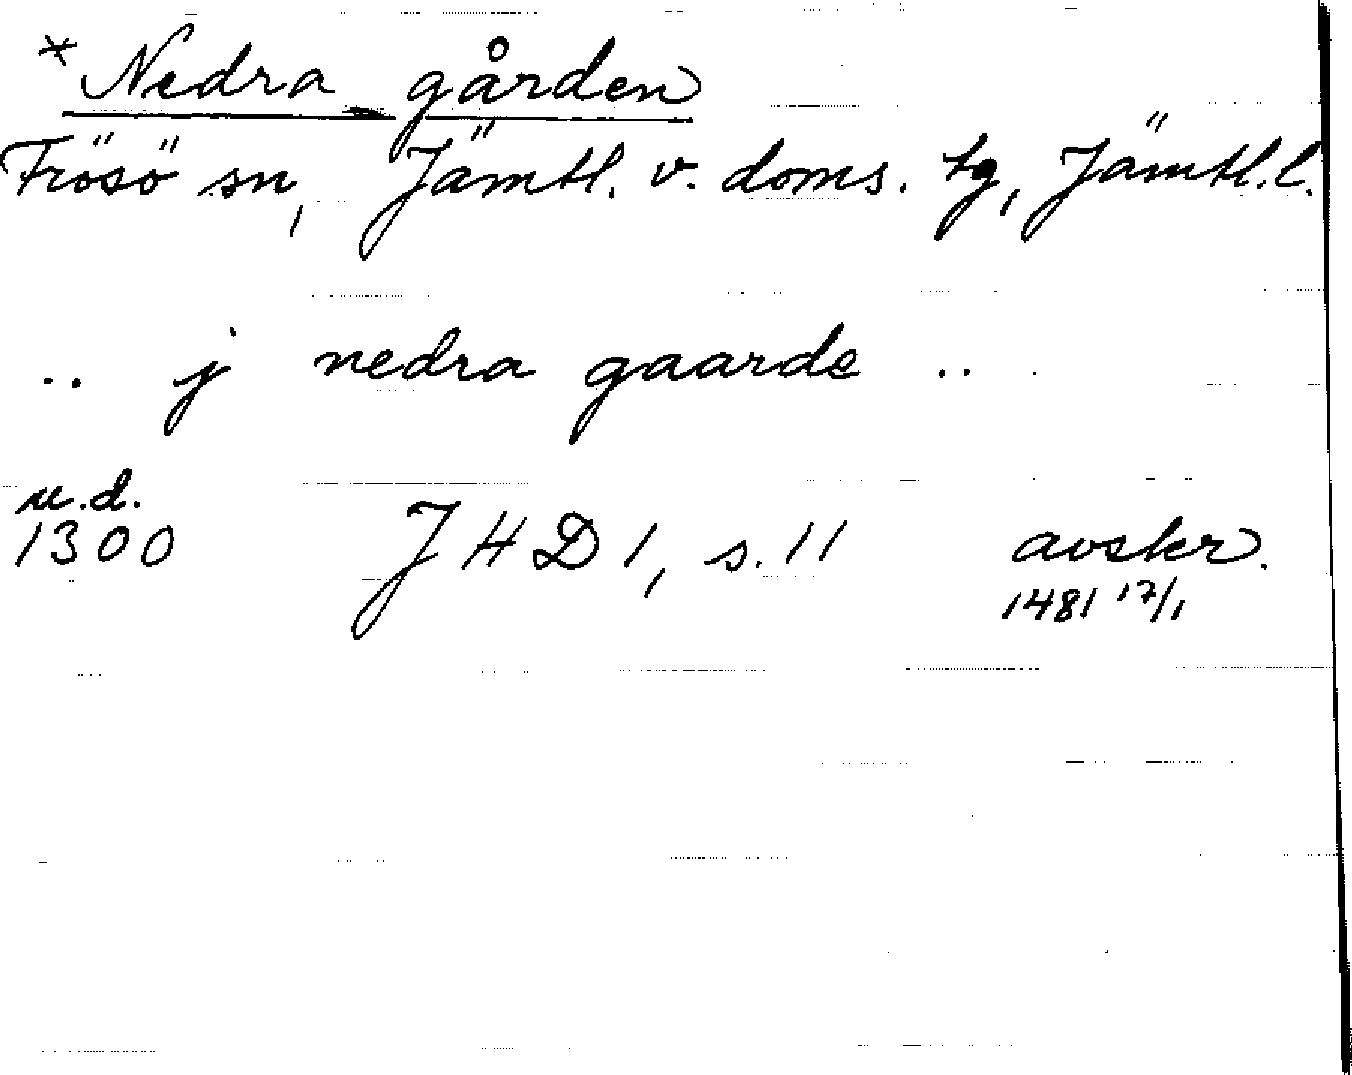 *Nedra gården
Frösö sn, Jämtl. v. doms. tg, Jämtl.l.
.. j nedra gaarde ..
u.d.
1300 JHD 1, s. 11 avskr.
1481 17/1